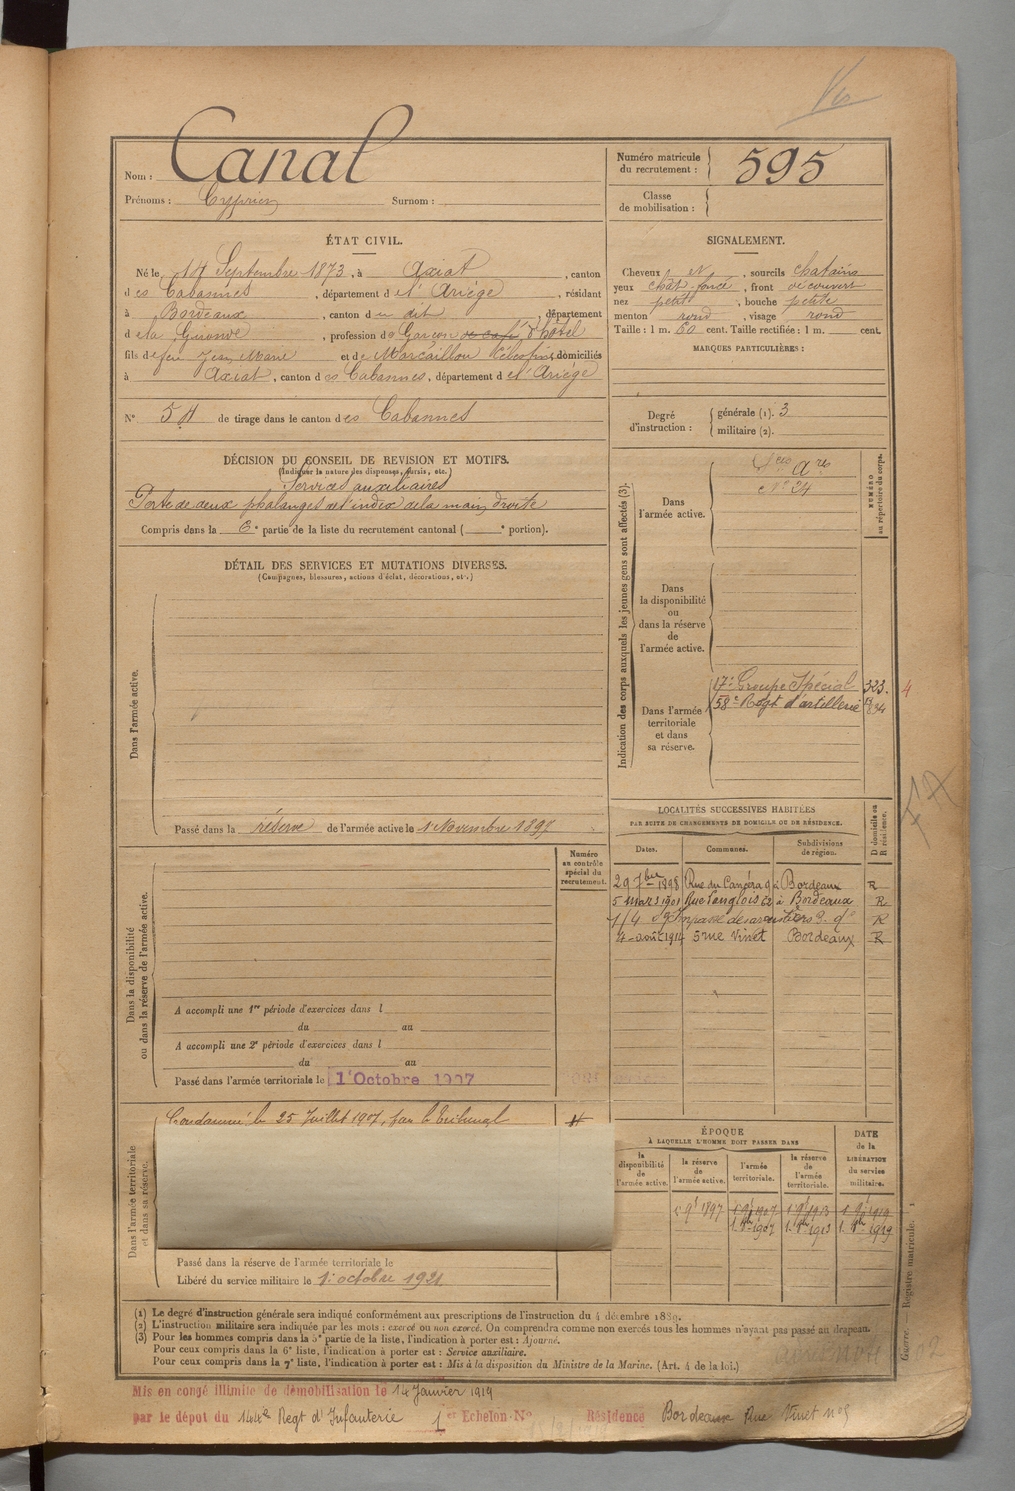 Nom : Canal
Prénoms : Cyprien Surnom :
Numéro matricule du recrutement : 595
Classe de mobilisation :
ÉTAT CIVIL.
Né le 14 Septembre 1873, à Axiat, canton
des Cabannes, département de l'Ariège, résidant
à Bordeaux, canton du dit, département
de la Gironde, profession de Garçon de café d'hôtel
fils de feu Jean Marie et de Marcaillou, domiciliés
à Axiat, canton des Cabannes, département de l'Ariège
N° 54 de tirage dans le canton des Cabannes
SIGNALEMENT.
Cheveux et, sourcils chatains
yeux chat. foncé, front découvert
nez petit, bouche petite
menton rond, visage rond
Taille : 1 m. 60 cent. Taille rectifiée : 1 m. cent.
MARQUES PARTICULIÈRES :
Degré d'instruction : générale (1). 3
militaire (2).
DÉCISION DU CONSEIL DE REVISION ET MOTIFS.
(Indiquer la nature des dispenses, sursis, etc.)
Services auxiliaires
Perte de deux phalanges de l'index de la main droite
Compris dans la 6e partie de la liste du recrutement cantonal ( e portion).
DÉTAIL DES SERVICES ET MUTATIONS DIVERSES.
(Campagnes, blessures, actions d'éclat, décorations, etc.)
Dans l'armée active.
Passé dans la réserve de l'armée active le 1 Novembre 1897
Indication des corps auxquels les jeunes gens sont affectés (3).
NUMÉRO au répertoire du corps.
Dans l'armée active.
N° 24
Dans la disponibilité ou dans la réserve de l'armée active.
Dans l'armée territoriale et dans sa réserve.
17e Groupe Spécial 323. 4
58e Regt d'artillerie
LOCALITÉS SUCCESSIVES HABITÉES
PAR SUITE DE CHANGEMENTS DE DOMICILE OU DE RÉSIDENCE.
Dates. Communes. Subdivisions de région. D domicile ou R résidence.
29 7bre 1898 Rue du Cancéra 9 à Bordeaux R
5 mars 1901 Rue Langlois 62 à Bordeaux R
R
4 août 1914 5 rue Vinet Bordeaux R
Dans la disponibilité ou dans la réserve de l'armée active.
Numéro au contrôle spécial du recrutement.
A accompli une 1re période d'exercices dans l
du au
A accompli une 2e période d'exercices dans l
du au
Passé dans l'armée territoriale le 1er Octobre 1907
Dans l'armée territoriale et dans sa réserve.
Condamné le 25 Juillet 1907, par le Tribunal
Passé dans la réserve de l'armée territoriale le
Libéré du service militaire le 1er octobre 1921
ÉPOQUE
À LAQUELLE L'HOMME DOIT PASSER DANS
la disponibilité de l'armée active. la réserve de l'armée active. l'armée territoriale. la réserve de l'armée territoriale.
DATE de la LIBÉRATION du service militaire.
(1) Le degré d'instruction générale sera indiqué conformément aux prescriptions de l'instruction du 4 décembre 1889.
(2) L'instruction militaire sera indiquée par les mots : exercé ou non exercé. On comprendra comme non exercés tous les hommes n'ayant pas passé au drapeau.
(3) Pour les hommes compris dans la 5e partie de la liste, l'indication à porter est : Ajourné.
Pour ceux compris dans la 6e liste, l'indication à porter est : Service auxiliaire.
Pour ceux compris dans la 7e liste, l'indication à porter est : Mis à la disposition du Ministre de la Marine. (Art. 4 de la loi.)
Guerre. — Registre matricule. 1
Mis en congé illimité de démobilisation le 14 Janvier 1919
par le dépot du 144e Regt d'Infanterie 1er Echelon N° Résidence Bordeaux Rue Vinet n°5